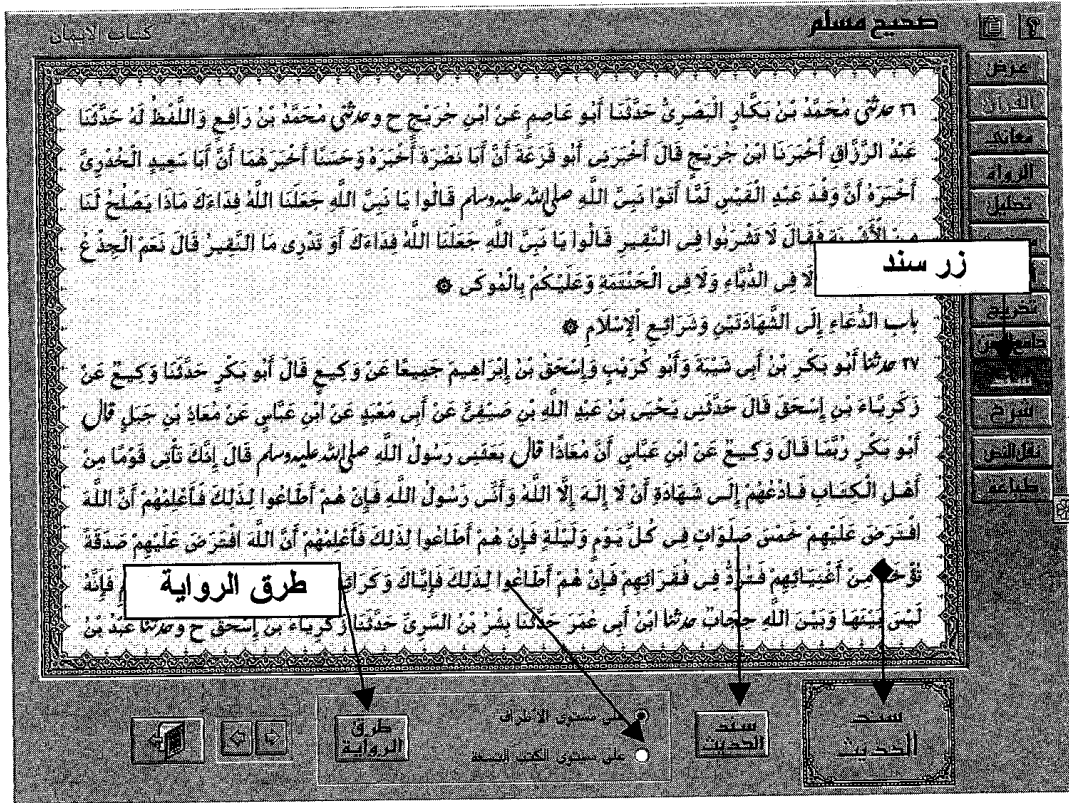 صحيح مسلم
كتاب الايمان
عرض
القرآن
معاني
الرواة
تحليل
زر سند
تخريج
سند
شرح
نقل النص
طباعة
٢٦ حدثني مُحَمَّدُ بْنُ بَكَّارٍ الْبَصْرِيُّ حَدَّثَنَا أَبُو عَاصِمٍ عَنْ ابْنِ جُرَيْجٍ ح و حدثني مُحَمَّدُ بْنُ رَافِعٍ وَاللَّفْظُ لَهُ حَدَّثَنَا
عَبْدُ الرَّزَّاقِ أَخْبَرَنَا ابْنُ جُرَيْجٍ قَالَ أَخْبَرَنِي أَبُو قَزَعَةَ أَنَّ أَبَا نَضْرَةَ أَخْبَرَهُ وَحَسَنًا أَخْبَرَهُمَا أَنَّ أَبَا سَعِيدٍ الْخُدْرِيَّ
أَخْبَرَهُ أَنَّ وَفْدَ عَبْدِ الْقَيْسِ لَمَّا أَتَوْا نَبِيَّ اللَّهِ صلى الله عليه وسلم قَالُوا يَا نَبِيَّ اللَّهِ جَعَلَنَا اللَّهُ فِدَاءَكَ مَاذَا يَصْلُحُ لَنَا
مِنْ الْأَشْرِبَةِ فَقَالَ لَا تَشْرَبُوا فِي النَّقِيرِ قَالُوا يَا نَبِيَّ اللَّهِ جَعَلَنَا اللَّهُ فِدَاءَكَ أَوَ تَدْرِي مَا النَّقِيرُ قَالَ نَعَمْ الْجِذْعُ
لَا فِي الدُّبَّاءِ وَلَا فِي الْحَنْتَمَةِ وَعَلَيْكُمْ بِالْمُوكَى
باب الدُّعَاءِ إِلَى الشَّهَادَتَيْنِ وَشَرَائِعِ الْإِسْلَامِ
٢٧ حدثنا أَبُو بَكْرِ بْنُ أَبِي شَيْبَةَ وَأَبُو كُرَيْبٍ وَإِسْحَقُ بْنُ إِبْرَاهِيمَ جَمِيعًا عَنْ وَكِيعٍ قَالَ أَبُو بَكْرٍ حَدَّثَنَا وَكِيعٌ عَنْ
زَكَرِيَّاءَ بْنِ إِسْحَقَ قَالَ حَدَّثَنِي يَحْيَى بْنُ عَبْدِ اللَّهِ بْنِ صَيْفِيٍّ عَنْ أَبِي مَعْبَدٍ عَنْ ابْنِ عَبَّاسٍ عَنْ مُعَاذِ بْنِ جَبَلٍ قال
أَبُو بَكْرٍ رُبَّمَا قَالَ وَكِيعٌ عَنْ ابْنِ عَبَّاسٍ أَنَّ مُعَاذًا قال بَعَثَنِي رَسُولُ اللَّهِ صلى الله عليه وسلم قَالَ إِنَّكَ تَأْتِي قَوْمًا مِنْ
أَهْلِ الْكِتَابِ فَادْعُهُمْ إِلَى شَهَادَةِ أَنْ لَا إِلَهَ إِلَّا اللَّهُ وَأَنِّي رَسُولُ اللَّهِ فَإِنْ هُمْ أَطَاعُوا لِذَلِكَ فَأَعْلِمْهُمْ أَنَّ اللَّهَ
افْتَرَضَ عَلَيْهِمْ خَمْسَ صَلَوَاتٍ فِي كُلِّ يَوْمٍ وَلَيْلَةٍ فَإِنْ هُمْ أَطَاعُوا لِذَلِكَ فَأَعْلِمْهُمْ أَنَّ اللَّهَ افْتَرَضَ عَلَيْهِمْ صَدَقَةً
تُؤْخَذُ مِنْ أَغْنِيَائِهِمْ فَتُرَدُّ فِي فُقَرَائِهِمْ فَإِنْ هُمْ أَطَاعُوا لِذَلِكَ فَإِيَّاكَ وَكَرَائِمَ فَإِنَّهُ
لَيْسَ بَيْنَهَا وَبَيْنَ اللَّهِ حِجَابٌ حدثنا ابْنُ أَبِي عُمَرَ حَدَّثَنَا بِشْرُ بْنُ السَّرِيِّ حَدَّثَنَا زَكَرِيَّاءُ بْنُ إِسْحَقَ ح و حدثنا عَبْدُ بْنُ
طرق الرواية
سند الحديث
سند الحديث
على مستوى الاطراف
على مستوى الكتب التسعة
طرق الرواية